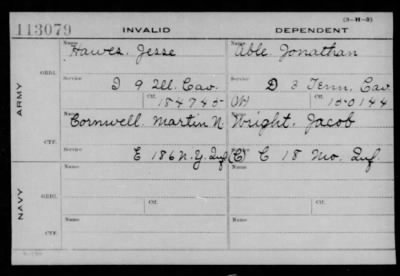 (3-M-3)
113079 INVALID DEPENDENT
Name Name
Hawes, Jesse Able, Jonathan
ORIG.
Service Service
I 9 Ill. Cav. D 3 Tenn. Cav
Ctf. Ctf.
184745 150144
ARMY
Name
Cornwell, Martin N. Wright, Jacob
CTF.
E 186 N.Y. Inf. C 18 Mo. Inf.
Name Name
ORIG.
Service Service
Ctf. Ctf.
NAVY
Name Name
CTF.